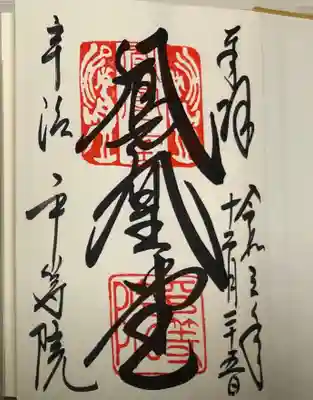 奉拝
令和三年
十二月二十五日
鳳凰堂
宇治 平等院